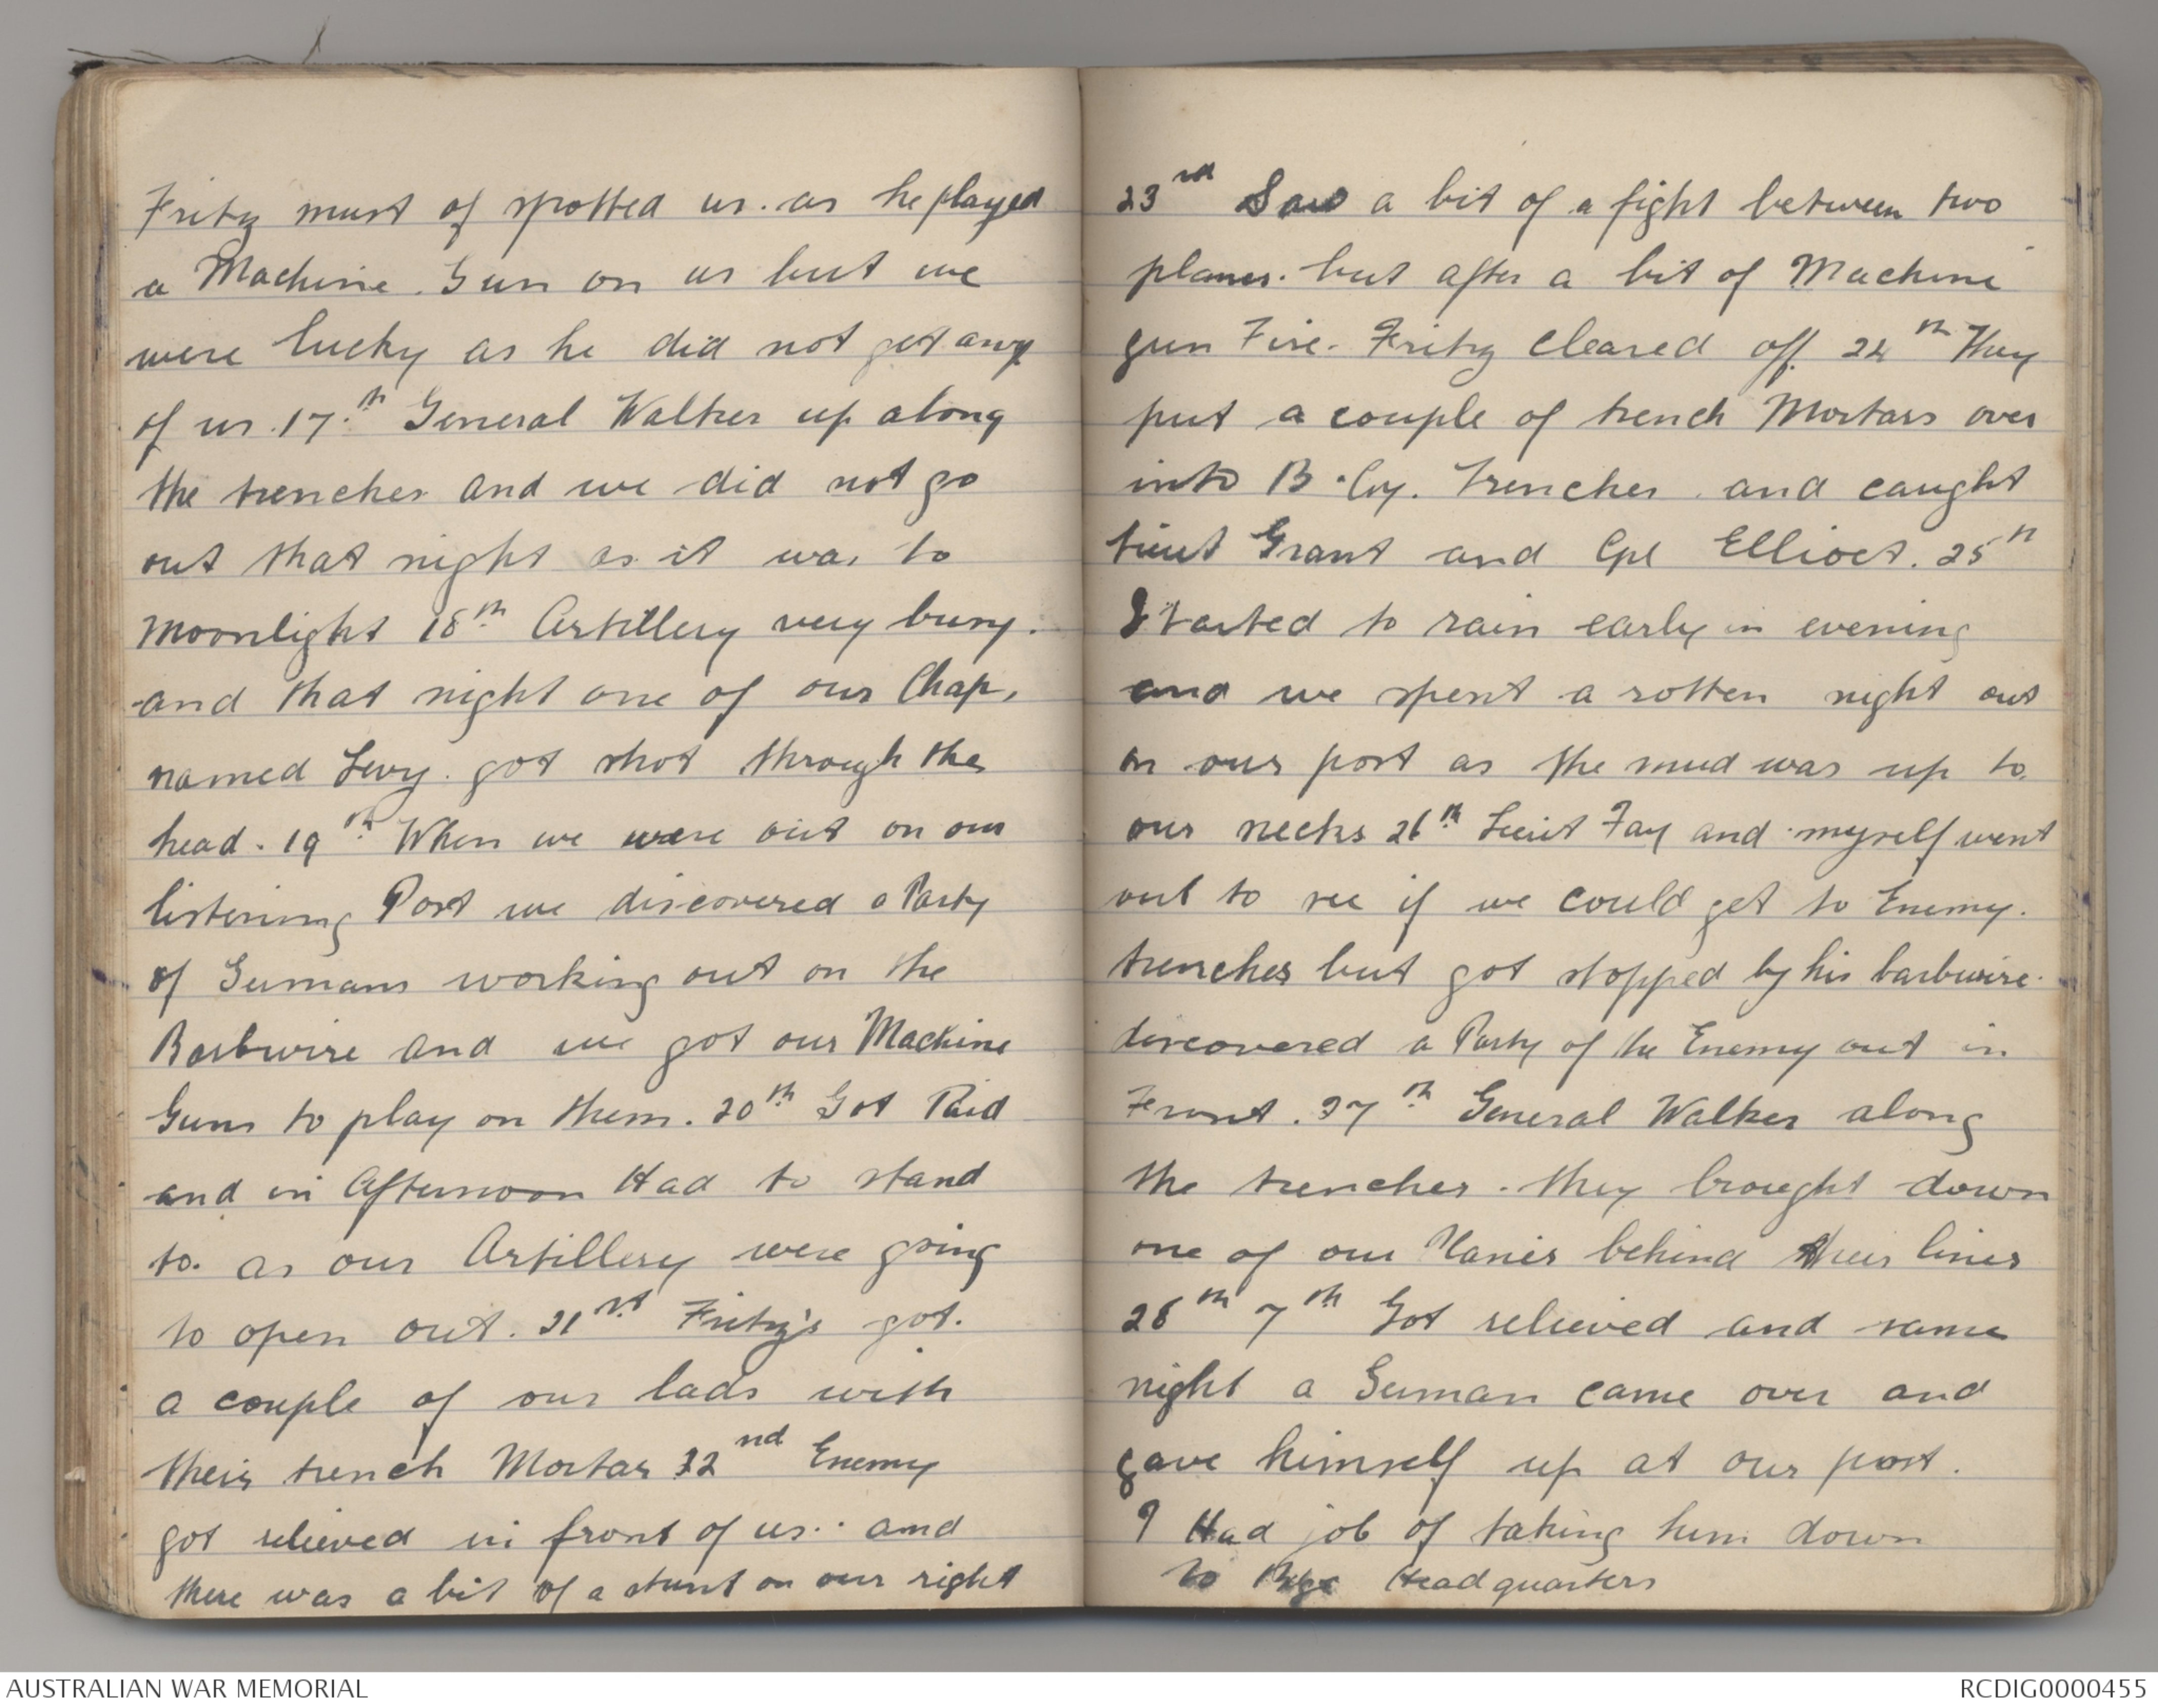 Fritz must of spotted us. as he played
a Machine. Gun on us but we
were lucky as he did not get any
of us. 17.th General Walker up along
the trenches and we did not go
out that night as it was to
moonlight 18th Artillery very busy.
and that night one of our Chaps
named Levy. got shot through the
head. 19th When we were out on our
listening Post we discovered a Party
of Germans working out on the
Barbwire and we got our Machine
Guns to play on them. 20th Got Paid
and in Afternoon Had to stand
to. as our Artillery were going
to open out. 21st Fritz's got.
a couple of our lads with
their trench Mortar 22nd Enemy
got relieved in front of us.. and
there was a bit of a stunt on our right
23rd Saw a bit of a fight between two
planes. but after a bit of Machine
gun Fire. Fritz cleared off. 24th They
put a couple of trench Mortars over
into B. Coy. Trenches and caught
Lieut Grant and Cpl Ellioct. 25th
Started to rain early in evening
and we spent a rotten night out
on our post as the mud was up to
our necks 26th Lieut Fay and myself went
out to see if we could get to Enemy.
trenches but got stopped by his barbwire.
discovered a Party of the Enemy out in
Front. 27th General Walker along
the trenches. they brought down
one of our Planes behind their lines
28th 7th Got relieved and same
night a German came over and
gave himself up at our post.
I Had job of taking him down
to Headquarters
AUSTRALIAN WAR MEMORIAL
RCDIG0000455